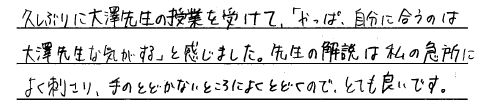 久しぶりに大澤先生の授業を受けて、「やっぱ、自分に合うのは
大澤先生な気がする」と感じました。先生の解説は私の急所に
よく刺さり、手のとどかないところによくとどくので、とても良いです。